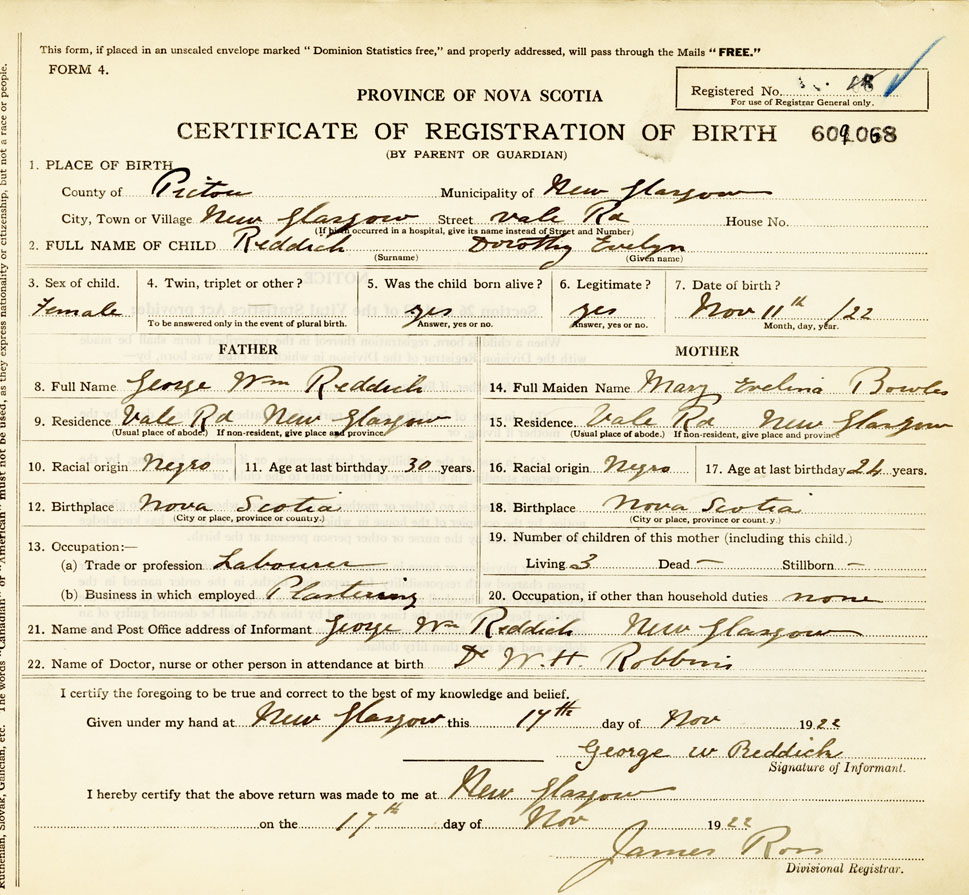 This form, if placed in an unsealed envelope marked "Dominion Statistics free," and properly addressed, will pass through the Mails "FREE."
FORM 4.
Registered No. 18
For use of Registrar General only.
PROVINCE OF NOVA SCOTIA
CERTIFICATE OF REGISTRATION OF BIRTH 609068
(BY PARENT OR GUARDIAN)
1. PLACE OF BIRTH
County of Pictou Municipality of New Glasgow
City, Town or Village New Glasgow Street Vale Rd House No.
(If birth occurred in a hospital, give its name instead of Street and Number)
2. FULL NAME OF CHILD Reddick Dorothy Evelyn
(Surname) (Given name)
3. Sex of child. 4. Twin, triplet or other? 5. Was the child born alive? 6. Legitimate? 7. Date of birth?
Female — yes yes Nov 11th /22
To be answered only in the event of plural birth. Answer, yes or no. Answer, yes or no. Month, day, year.
FATHER MOTHER
8. Full Name George Wm Reddick 14. Full Maiden Name Mary Evelina Bowles
9. Residence Vale Rd New Glasgow 15. Residence Vale Rd New Glasgow
(Usual place of abode.) If non-resident, give place and province (Usual place of abode.) If non-resident, give place and province
10. Racial origin Negro 11. Age at last birthday 30 years. 16. Racial origin Negro 17. Age at last birthday 24 years.
12. Birthplace Nova Scotia 18. Birthplace Nova Scotia
(City or place, province or country.) (City or place, province or country.)
13. Occupation:— 19. Number of children of this mother (including this child.)
(a) Trade or profession Labourer Living 3 Dead — Stillborn —
(b) Business in which employed Plastering 20. Occupation, if other than household duties none
21. Name and Post Office address of Informant George Wm Reddick New Glasgow
22. Name of Doctor, nurse or other person in attendance at birth Dr W. H. Robbins
I certify the foregoing to be true and correct to the best of my knowledge and belief.
Given under my hand at New Glasgow this 17th day of Nov 1922
George W Reddick
Signature of Informant.
I hereby certify that the above return was made to me at New Glasgow
on the 17th day of Nov 1922
James Ross
Divisional Registrar.
Ruthenian, Slovak, Galician, etc. The words "Canadian" or "American" must not be used, as they express nationality or citizenship, but not a race or people.